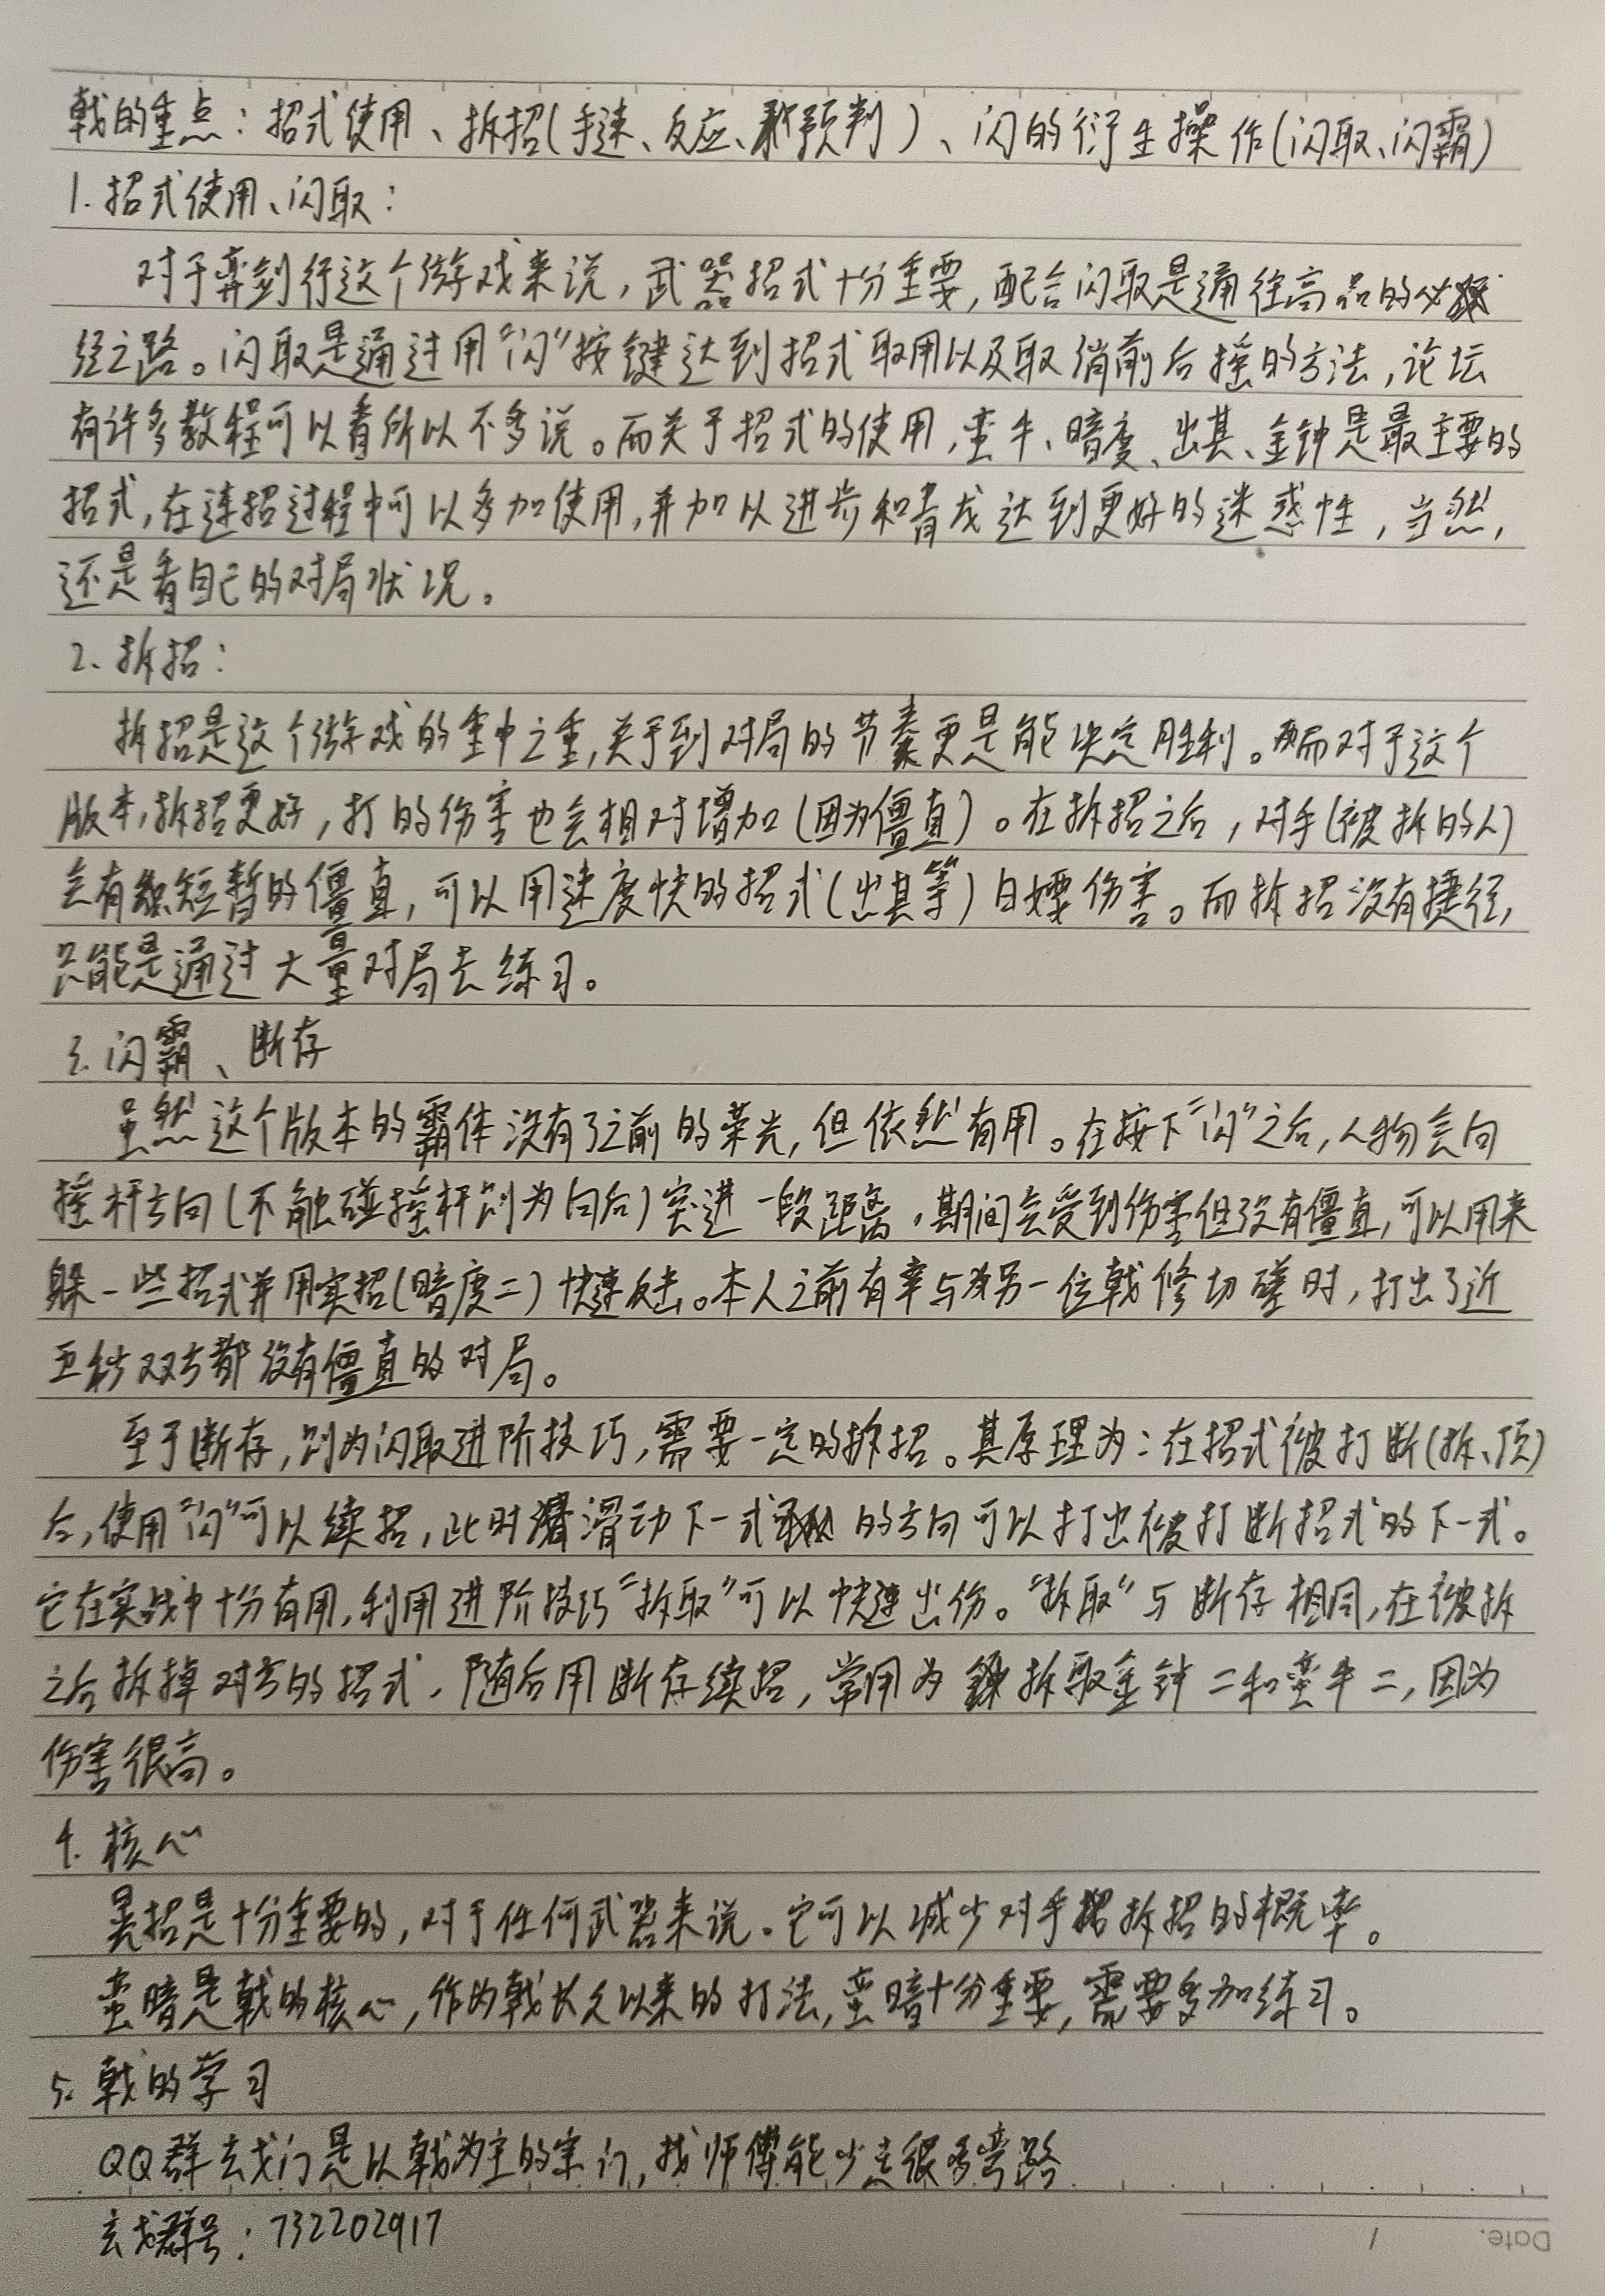 戟的重点：招式使用、拆招(手速、反应、预判)、闪的衍生操作(闪取、闪霸)
1.招式使用、闪取：
对于弈剑行这个游戏来说，武器招式十分重要，配合闪取是通往高品的必
经之路。闪取是通过用“闪”按键达到招式取用以及取消前后摇的方法，论坛
有许多教程可以看所以不多说。而关于招式的使用，蛮牛、暗度、出其、金钟是最主要的
招式，在连招过程中可以多加使用，并加以进步和青龙达到更好的迷惑性，当然，
还是看自己的对局状况。
2、拆招：
拆招是这个游戏的重中之重，关于到对局的节奏更是能决定胜利。而对于这个
版本，拆招更好，打的伤害也会相对增加(因为僵直)。在拆招之后，对手(被拆的人)
会有短暂的僵直，可以用速度快的招式(出其等)白嫖伤害。而拆招没有捷径，
只能是通过大量对局去练习。
3.闪霸、断存
虽然这个版本的霸体没有了之前的荣光，但依然有用。在按下“闪”之后，人物会向
摇杆方向(不触碰摇杆则为向后)突进一段距离，期间会受到伤害但没有僵直，可以用来
躲一些招式并用实招(暗度二)快速反击。本人之前有幸与另一位戟修切磋时，打出了近
五秒双方都没有僵直的对局。
至于断存，则为闪取进阶技巧，需要一定的拆招。其原理为：在招式被打断(拆、顶)
后，使用“闪”可以续招，此时滑动下一式的方向可以打出被打断招式的下一式。
它在实战中十分有用，利用进阶技巧“拆取”可以快速出伤。“拆取”与断存相同，在被拆
之后拆掉对方的招式，随后用断存续招，常用为拆取金钟二和蛮牛二，因为
伤害很高。
4.核心
晃招是十分重要的，对于任何武器来说。它可以减少对手拆招的概率。
蛮暗是戟的核心，作为戟长久以来的打法，蛮暗十分重要，需要多加练习。
5.戟的学习
QQ群玄戈门是以戟为主的宗门，找师傅能少走很多弯路
玄戈群号：732202917
Date. 1